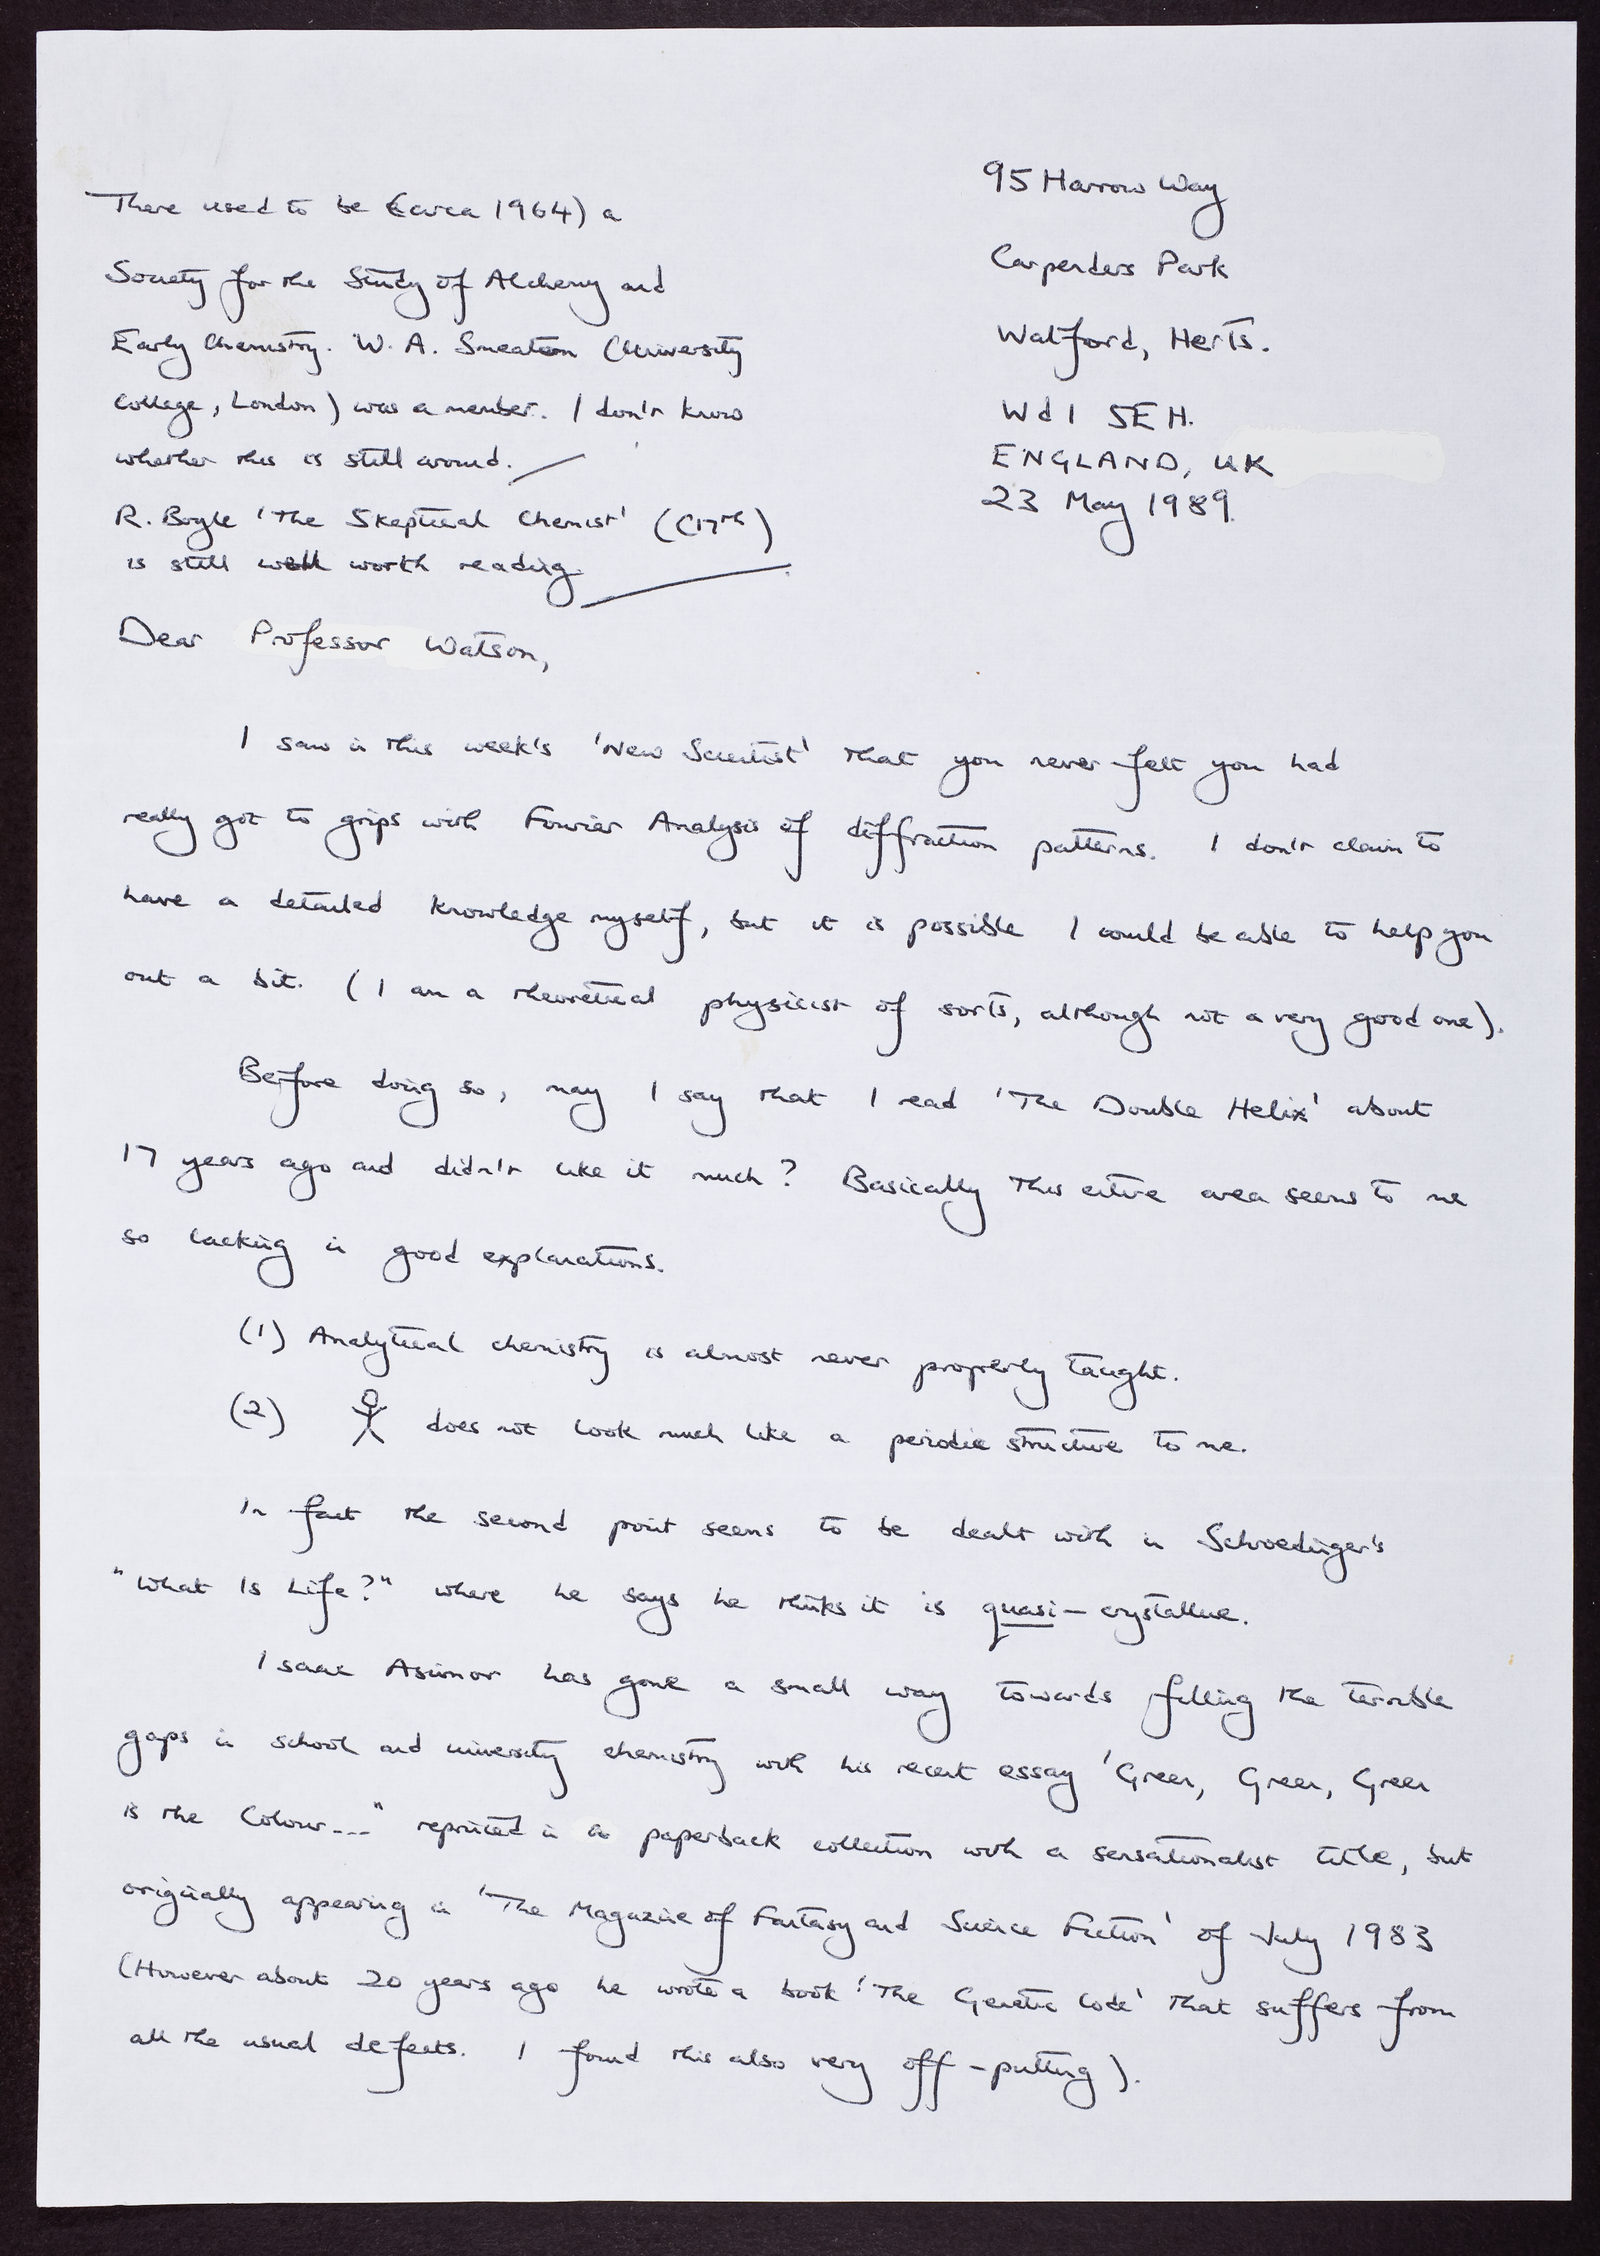 There used to be (circa 1964) a
Society for the Study of Alchemy and
Early Chemistry. W. A. Smeaton (University
College, London) was a member. I don't know
whether this is still around.
R. Boyle 'The Skeptical Chemist' (C17th)
is still well worth reading.
95 Harrow Way
Carpenders Park
Watford, Herts.
Wd1 5EH.
ENGLAND, UK
23 May 1989.
Dear Professor Watson,
I saw in this week's 'New Scientist' that you never felt you had
really got to grips with Fourier Analysis of diffraction patterns. I don't claim to
have a detailed knowledge myself, but it is possible I could be able to help you
out a bit. (I am a theoretical physicist of sorts, although not a very good one).
Before doing so, may I say that I read 'The Double Helix' about
17 years ago and didn't like it much? Basically this entire area seems to me
so lacking in good explanations.
(1) Analytical chemistry is almost never properly taught.
(2) does not look much like a periodic structure to me.
In fact the second point seems to be dealt with in Schroedinger's
"What Is Life?" where he says he thinks it is quasi-crystalline.
Isaac Asimov has gone a small way towards filling the terrible
gaps in school and university chemistry with his recent essay 'Green, Green, Green
is the Colour---" reprinted in a paperback collection with a sensationalist title, but
originally appearing in 'The Magazine of Fantasy and Science Fiction' of July 1983
(However about 20 years ago he wrote a book 'The Genetic Code' that suffers from
all the usual defects. I found this also very off-putting).